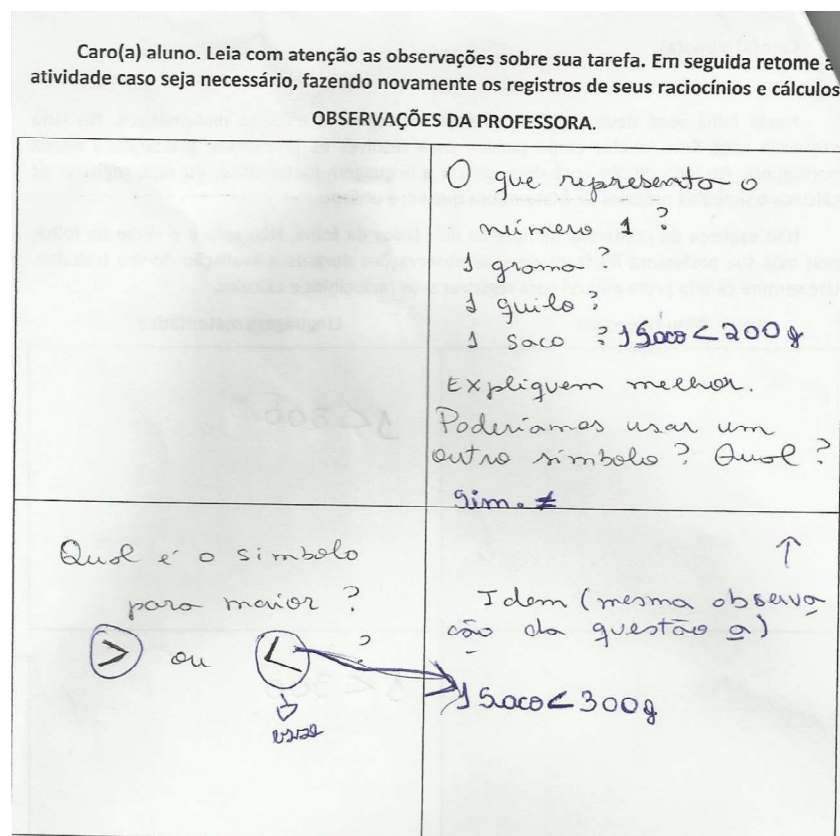 Caro(a) aluno. Leia com atenção as observações sobre sua tarefa. Em seguida retome a
atividade caso seja necessário, fazendo novamente os registros de seus raciocínios e cálculos
OBSERVAÇÕES DA PROFESSORA.
O que representa o
número 1 ?
1 grama ?
1 quilo ?
1 saco ? 1 Saco < 200 g
Expliquem melhor.
Poderíamos usar um
outro símbolo ? Qual ?
Sim. ≠
Qual é o símbolo
para maior ?
> ou < ?
↑
Idem (mesma observa
ção da questão a)
1 Saco < 300g